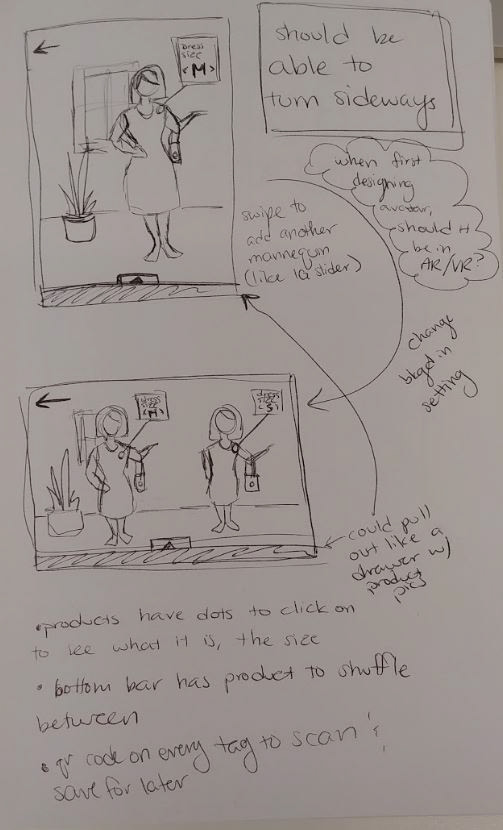 dress
size
< M >
should be
able to
turn sideways
when first
designing
avatar,
should it
be in
AR/VR?
swipe to
add another
mannequin
(like IG slider)
change
bkgd in
setting
dress
size
< M >
dress
size
< S >
could pull
out like a
drawer w/
product
pics
• products have dots to click on
to see what it is, the size
• bottom bar has product to shuffle
between
• qr code on every tag to scan &
save for later